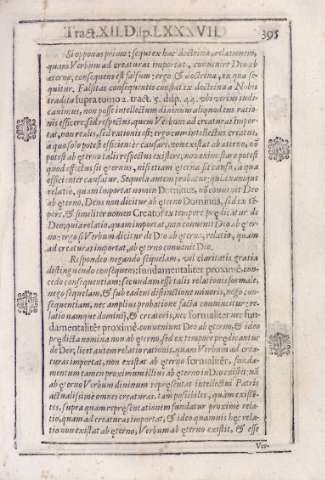 Tract. XII. Disp. LXXXVII. 395
Si opponas primo: sequi ex hac doctrina, relationem,
quam Verbum ad creaturas importat, convenire Deo ab
æterno; consequens est falsum: ergo & doctrina, ex qua se-
quitur. Falsitas consequentis constat ex doctrina a Nobis
tradita supra tomo 2. tract. 5. disp. ubi veriùs indi-
cavimus, non posse intellectum divinum aliquod ens ratio-
nis efficere; sed respectus, quem Verbum ad creaturas impor-
tat, non realis, sed rationis est; ergo cum intellectus creatus,
a quo solo potest effici ens causare, non existat ab æterno, nō
potest ab æterno talis respectus existere; non enim stare potest
quod effectus sit æternus, nisi etiam æterna sit causa, a qua
effici enter causatur. Sequela autem probatur; quia tamquam
relatio, quam importat nomen Dominus, nō convenit Deo
ab æterno, Deus non dicitur ab æterno Dominus, sed ex tē-
pore, & similiter nomen Creator ex tempore prædicatur de
Deo, quia relatio, quam importat, non convenit Deo ab æter-
no: ergo si Verbum dicitur de Deo ab æterno, relatio, quam
ad creaturas importat, ab æterno convenit Deo.
Respondeo negando sequelam, vel claritatis gratia
distinguendo consequens: fundamentaliter proximè, con-
cedo consequentiam; secundum esse talis relationis formale,
nego sequelam, & sub eadem distinctione minoris, nego con-
sequentiam, nec amplius probatione facta convincitur: re-
latio namque domini, & creatoris, nec formaliter nec fun-
damentaliter proximè conveniunt Deo ab æterno, & ideo
prædicta nomina non ab æterno, sed ex tempore prædicantur
de Deo; licet autem relatio rationis, quam Verbum ad crea-
turas importat, non existat ab æterno formaliter, funda-
mentum tamen proximum illius ab æterno in Deo existit: nā
ab æterno Verbum divinum repræsentat intellectui Patris
actualissimè omnes creaturas, tam possibiles, quam existē-
tes, supra quam repræsentationem fundatur proximè rela-
tio, quam ad creaturas importat, & ideo quamvis hæc rela-
tio non existat ab æterno, Verbum ab æterno existit, & esse
Ver-